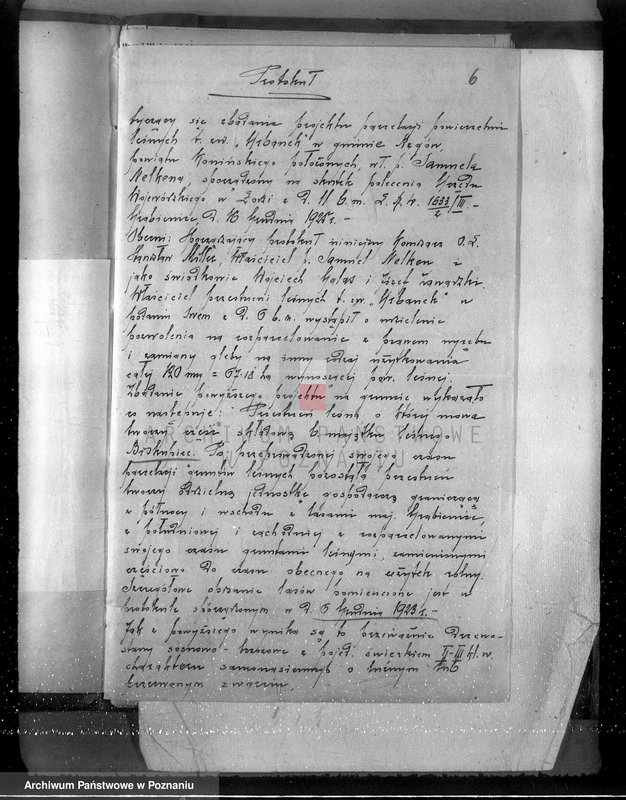 Protokuł
6
tyczący się zbadania projektu parcelacji powierzchni
leśnych t. zw. „Urbanek" w gminie
powiatu Konińskiego położonych, wł. p. Samuela
Nelkena, sporządzony na skutek polecenia Urzędu
Wojewódzkiego w Łodzi z d. 11 b.m. L.p.h. 1633/2/III. -
Grabienice d. 16 Grudnia 1925 r. -
Obecni: Sporządzający protokuł niniejszy Komisarz O.L.
Stanisław Miller, Właściciel p. Samuel Nelken i
jako świadkowie Wojciech Gałas i Józef
Właściciel przestrzeni leśnych t. zw. „Urbanek" w
podaniu swem z d. 6 b.m. wystąpił o udzielenie
pozwolenia na rozparcelowanie z prawem wyrębu
i zamiany gleby na inny rodzaj użytkowania
całej 120 mg = 67.18 ha wynoszącej pow. leśnej.
Zbadanie powyższego projektu na gruncie wykazało
co następuje: Przestrzeń leśna o której mowa
tworzy część składową b. majątku leśnego
Biskupice. Po przeprowadzonej swojego czasu
parcelacji gruntów leśnych pozostała przestrzeń
tworzy oddzielną jednostkę gospodarczą graniczącą
z północy i wschodu z lasami maj. Grabienice,
z południowej i zachodniej z rozparcelowanymi
swojego czasu gruntami leśnymi, zamienionymi
częściowo do czasu obecnego na użytek rolny.
Szczegółowe obszanie lasów pomieszczone jest w
protokule sporządzonym w d. 6 Grudnia 1923 r. -
Jak z powyższego wynika są to przeważnie drzewo-
stany sosnowo-brzozowe z pojed. świerkiem II-III kl. w.
charakteru samonasiennych o luźnym lub
przerwanym zwarciu.
ARCHIWUM PAŃSTWOWE
W POZNANIU
Archiwum Państwowe w Poznaniu